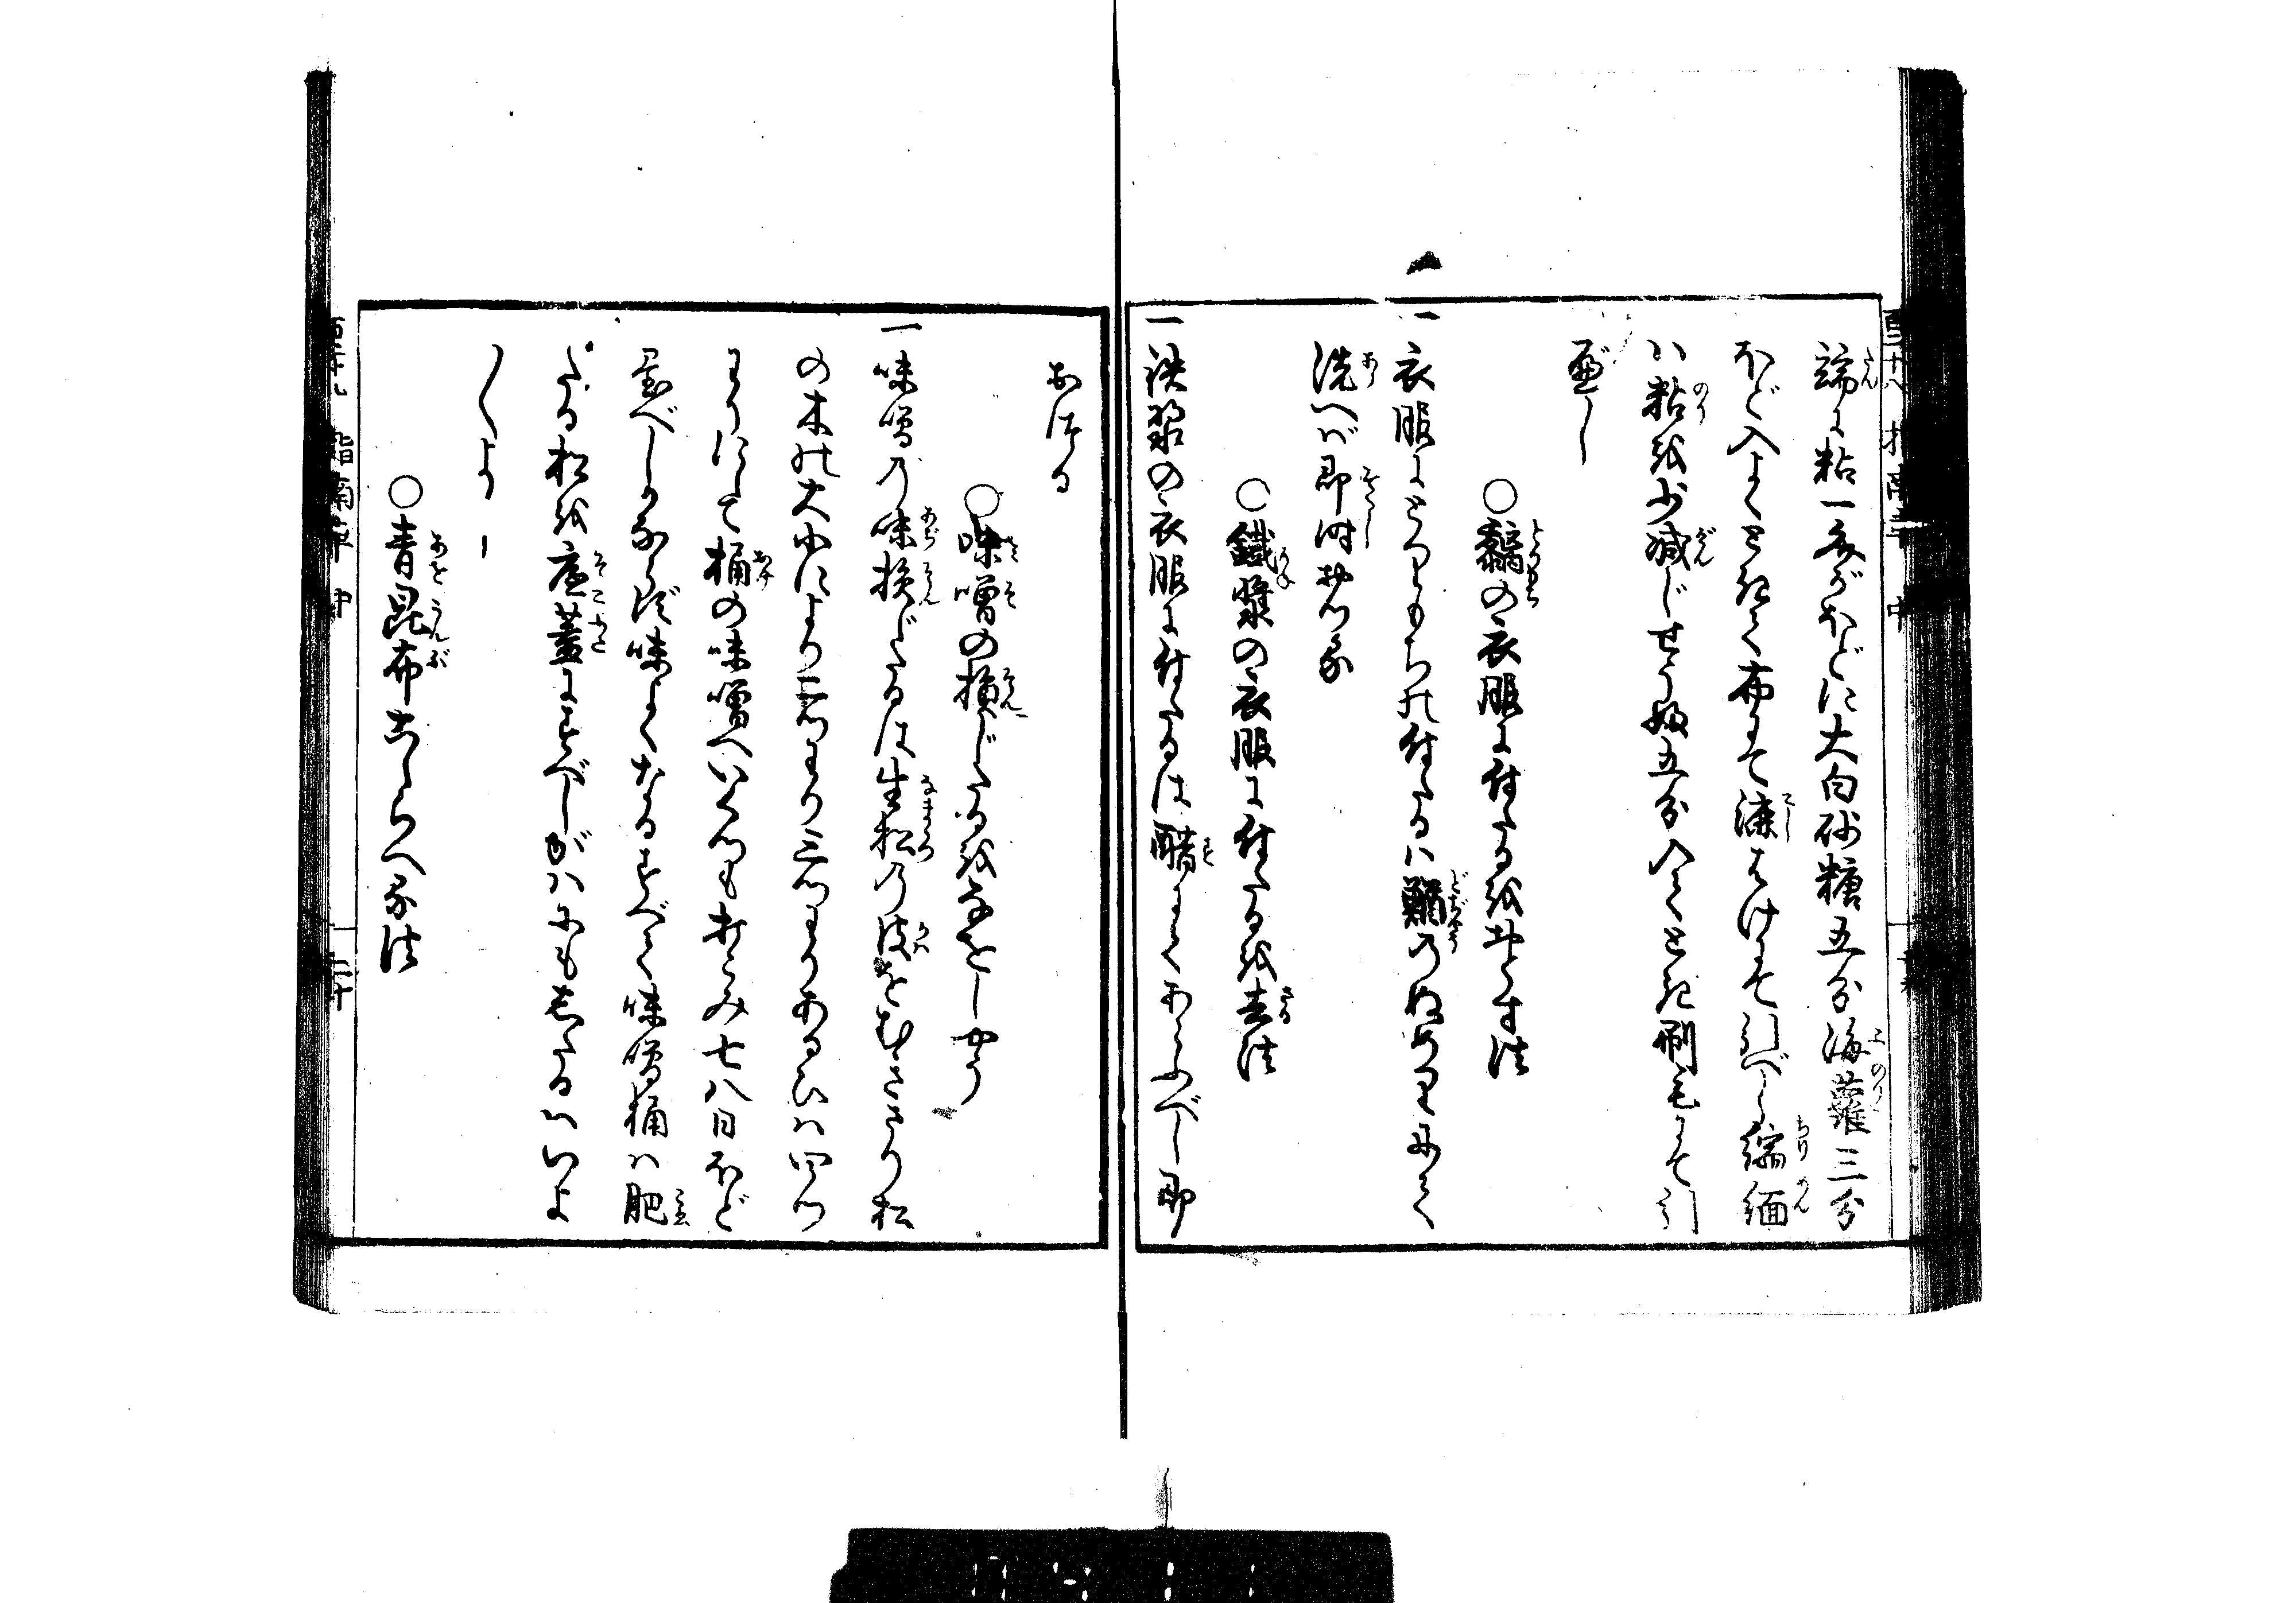 端に粘一合がほどに大白砂糖五分海蘿三分
ほど入よくときて布にて漉はけにて引べし縮緬
ハ粘を少減じせうふ五分入てとき刷毛にて引
べし
○黐の衣服に付たるを落す法
一衣服にとりもちの付たるハ鰌のぬめりにて
洗へバ即時おつる
○鐵漿の衣服に付たるを去法
一鉄漿の衣服に付たるは醋にてあらふべし即
おつる
○味噌の損じたるを直しやう
一味噌の味損じたるは生松の皮をむきさり松
の木の大小により二つわり三つわりあるひハ四つ
わりにして桶の味噌へいくつも打こみ七八日ほど
置べしかならず味よくなるすべて味噌桶ハ肥
たる松を底蓋にすべしがハにもしたるハいよ
〱よし
○青昆布こしらへる法